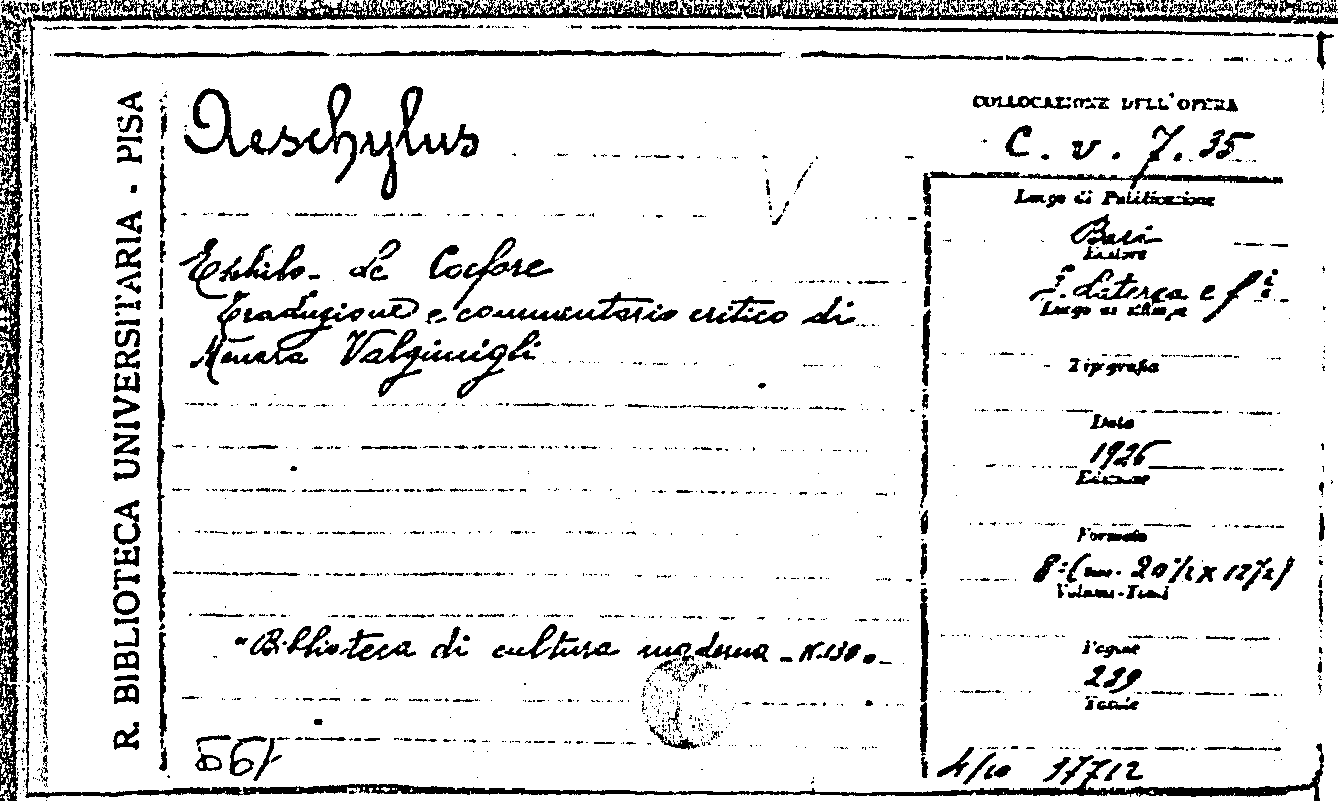 R. BIBLIOTECA UNIVERSITARIA - PISA
Aeschylus
Eschilo - Le Coefore
Traduzione e commentario critico di
Manara Valgimigli
"Biblioteca di cultura moderna - N. 130"
COLLOCAZIONE DELL'OPERA
C. v. 7. 35
Luogo di Pubblicazione
Bari
Editore
Laterza e fi
Luogo di stampa
Tipografia
Data
1926
Edizione
Formato
8° ( 20 1/2 x 12 1/2)
Volumi-Tomi
Pagine
239
Tavole
4/10 17712